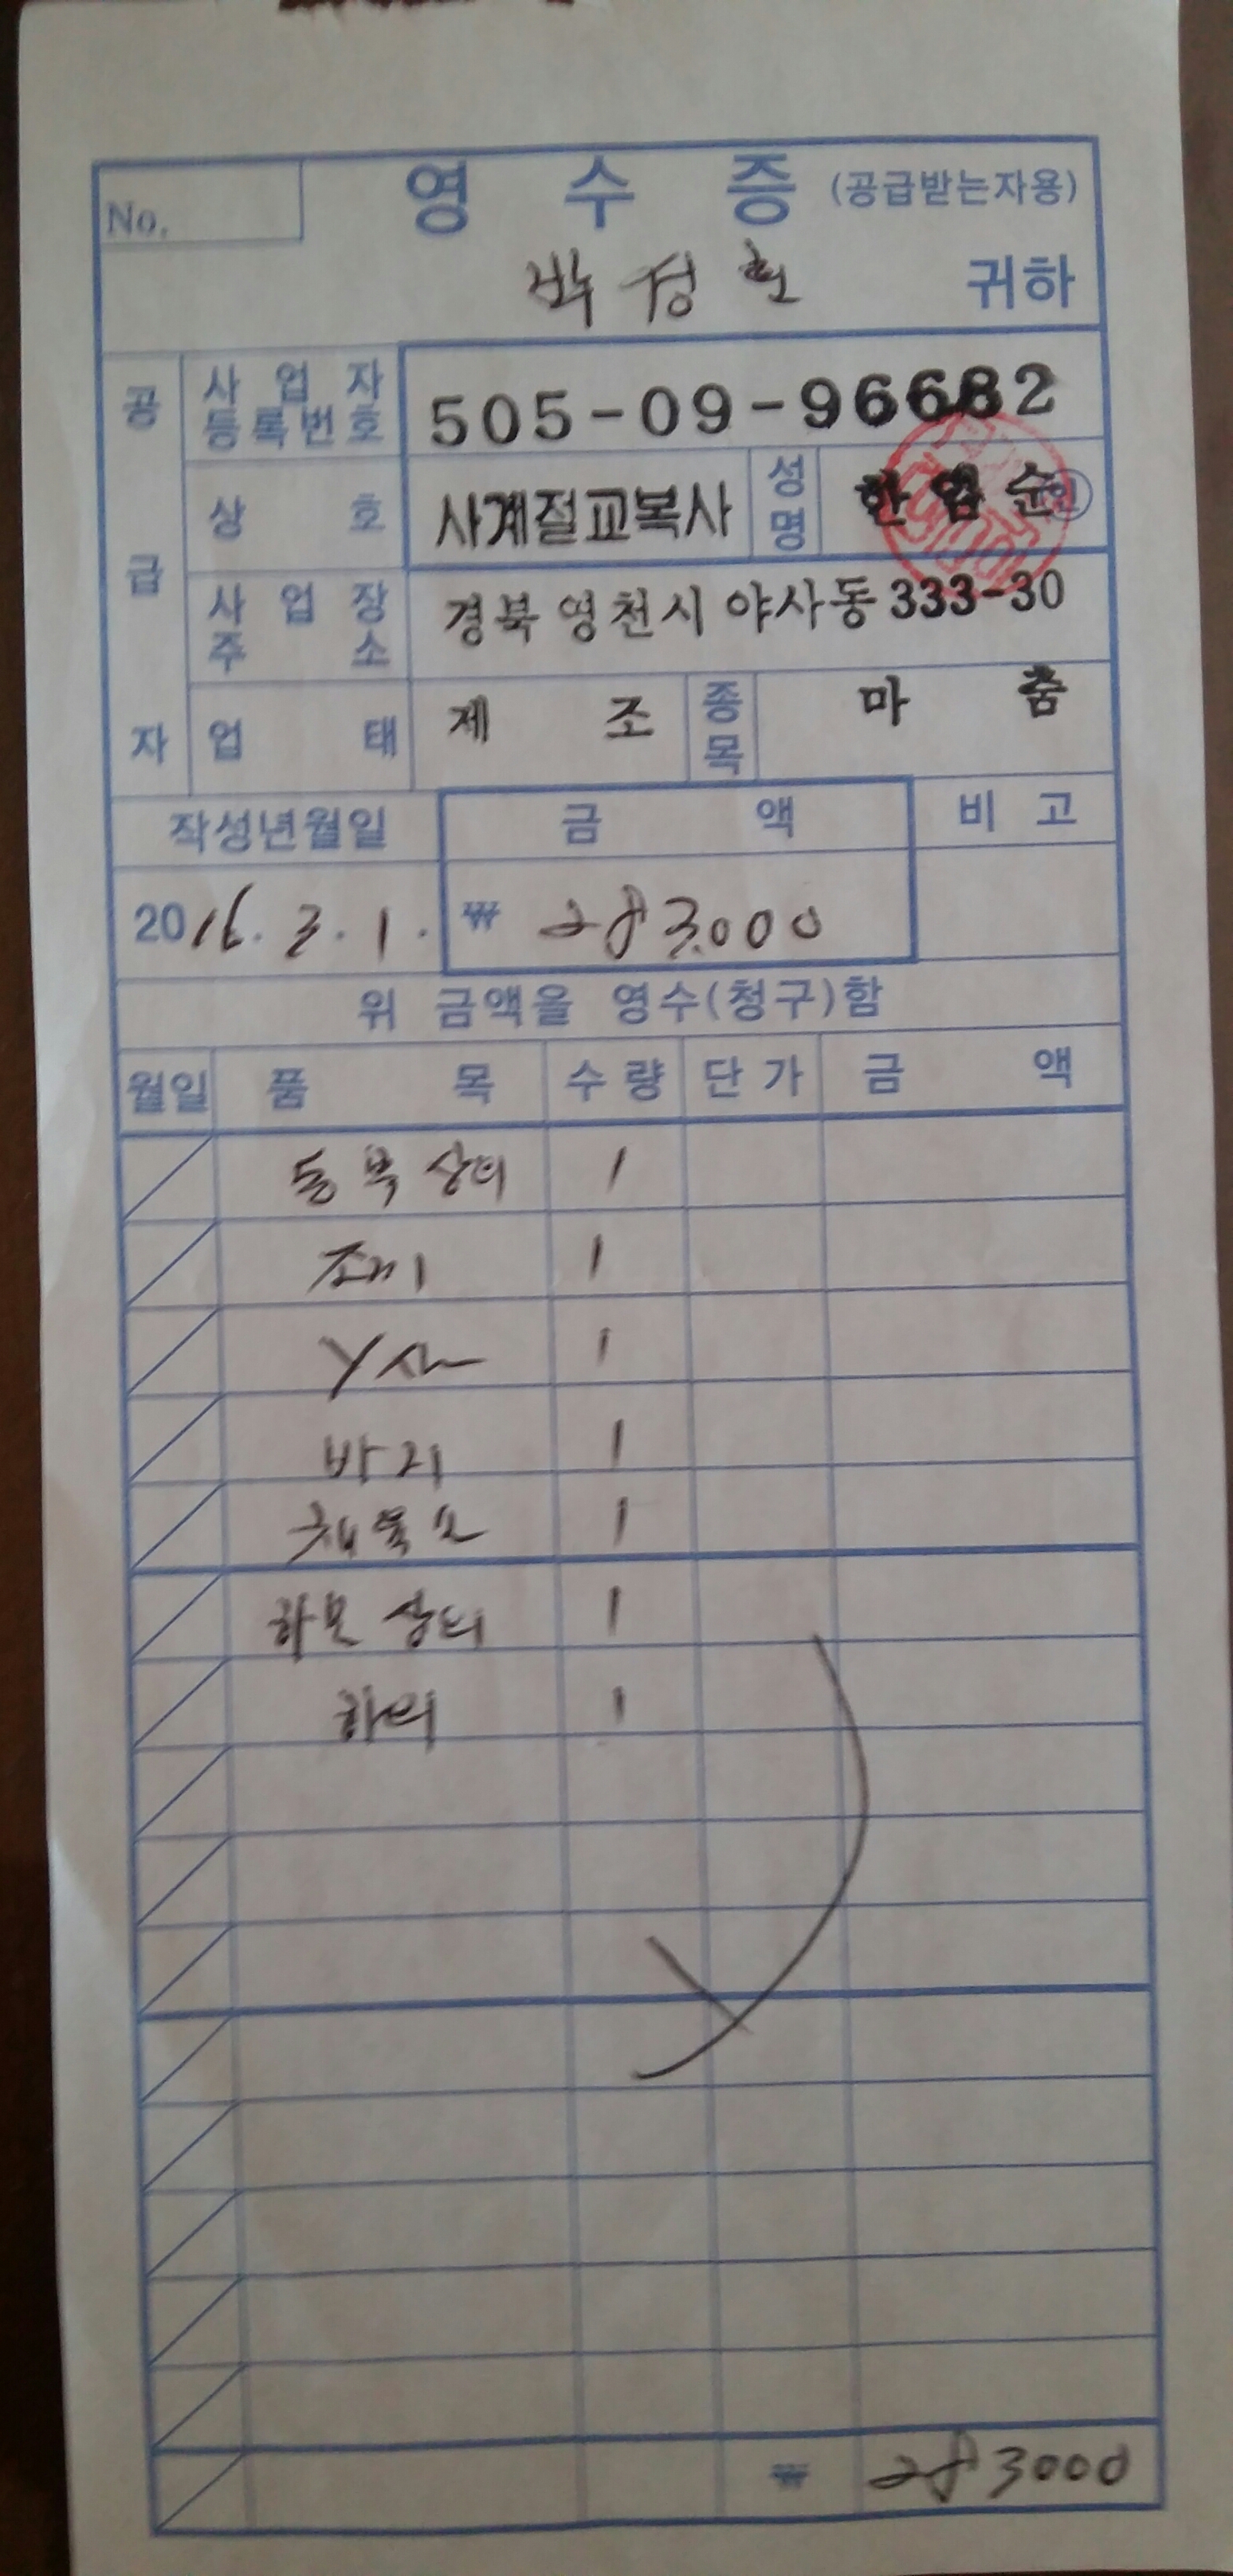 No. 영수증 (공급받는자용)
박정호 귀하
공급자
사업자등록번호 505-09-96682
상호 사계절교복사 성명 한엽순 인
사업장주소 경북 영천시 야사동 333-30
업태 제조 종목 마춤
작성년월일 금액 비고
2016. 3. 1. ₩ 283.000
위 금액을 영수(청구)함
월일 품목 수량 단가 금액
동복 상의 1
조끼 1
Y사 1
바지 1
체육복 1
하복 상의 1
하의 1
₩ 283000